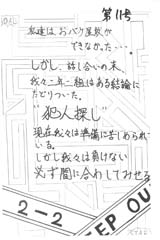 第11号
友達は、おバケ屋敷が
できなかった・・・。
しかし、話し合いの末、
我々二年二組はある結論に
たどりついた。
"犯人探し"
現在我々は準備に苦しめられ
ている。
しかし我々は負けない
必ず間に合わしてみせる
2-2
KEEP OUT